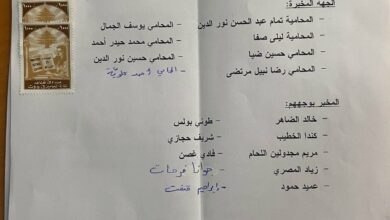 الجهة المخبرة:
- المحامية تمام عبد الحسن نور الدين
- المحامي يوسف الجمال
- المحامية ليلى صفا
- المحامي محمد حيدر أحمد
- المحامي حسين ضيا
- المحامي حسين نور الدين
- المحامي رضا نبيل مرتضى
- المحامي أحمد
المخبر بوجههم:
- خالد الضاهر
- طوني بولس
- كندا الخطيب
- شريف حجازي
- مريم مجدولين اللحام
- فادي غصن
- زياد المصري
- جوانا فرحات
- عميد حمود
- ابراهيم
١٠٠٠
١٠٠٠